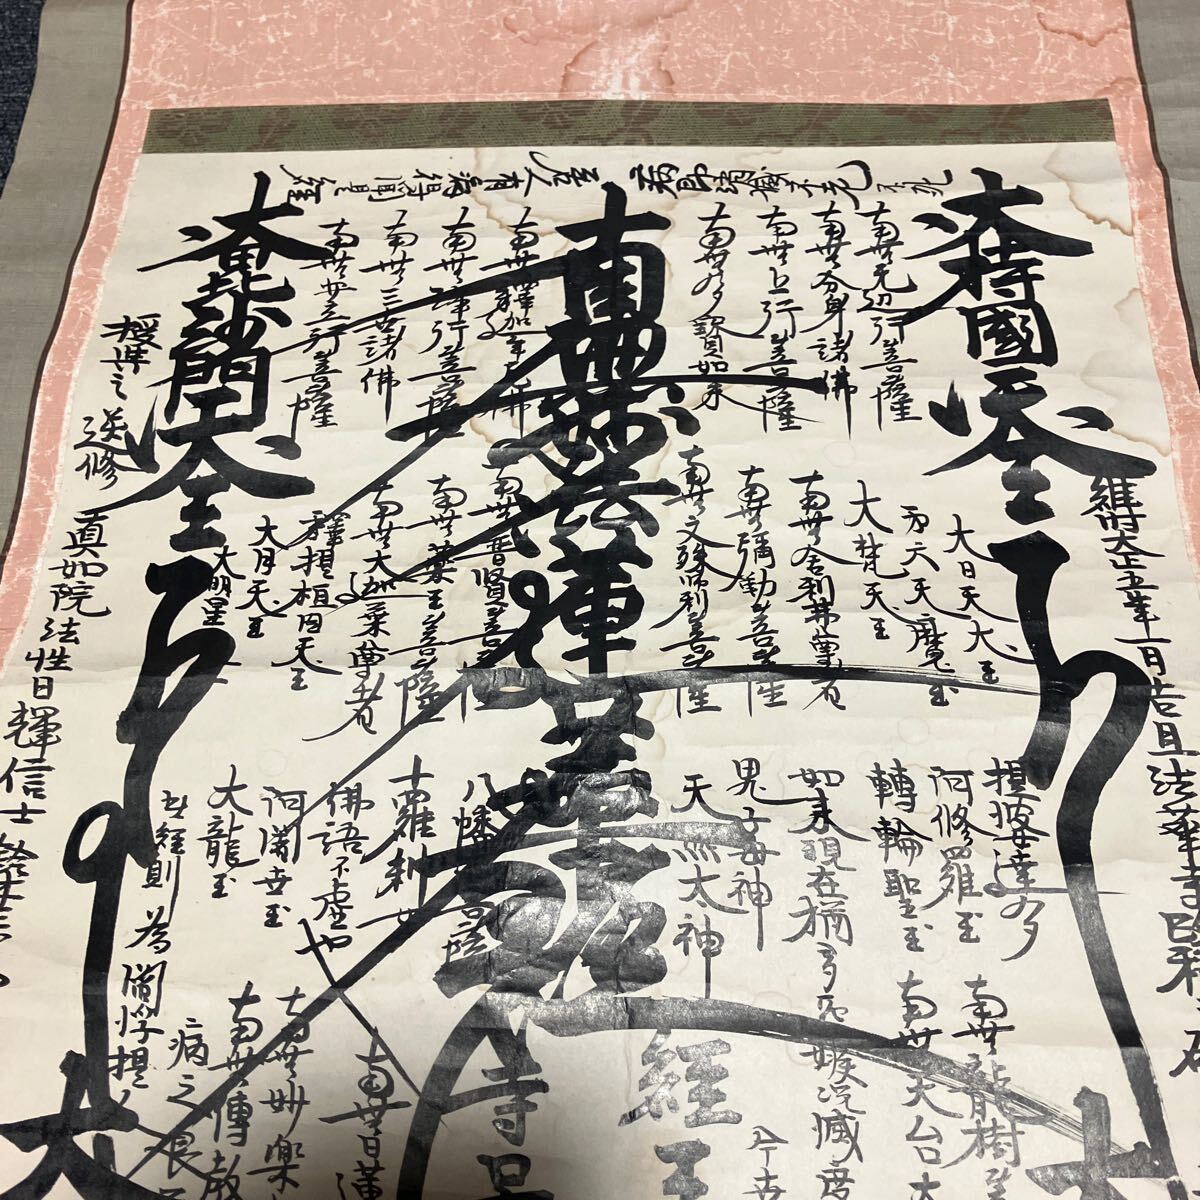 大持國天王
維時大正五年一月吉旦法華寺
南無無辺行菩薩
南無分身諸佛
南無上行菩薩
南無多寳如来
南無妙法蓮華経
南無釋迦牟尼佛
南無浄行菩薩
南無三世諸佛
南無安立行菩薩
大毘沙門天王
授与之
真如院法性日輝信士
大日天大王
第六天魔王
大梵天王
南無舎利弗尊者
南無彌勒菩薩
南無文殊師利菩薩
南無普賢菩薩
南無薬王菩薩
南無大迦葉尊者
釋提桓因天王
大月天王
大明星
提婆達多
阿修羅王
轉輪聖王
如来現在猶多怨嫉况滅度
鬼子母神
天照太神
八幡大菩薩
十羅刹女
佛語不虚也
阿闍世王
大龍王
此経則為閻浮提人
病之良
南無龍樹
南無天台大
経王
南無日蓮
南無妙楽
南無傳教
若人有病得聞是経
病即消滅不老不死